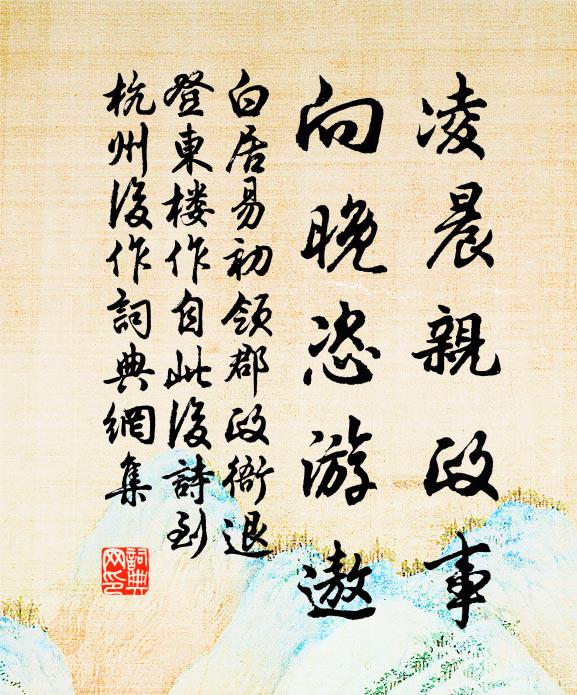 凌晨親政事
向晚恣游遨
白居易初领郡政衙退
登東楼作自此後詩到
杭州後作詞典網集
詞典
网印